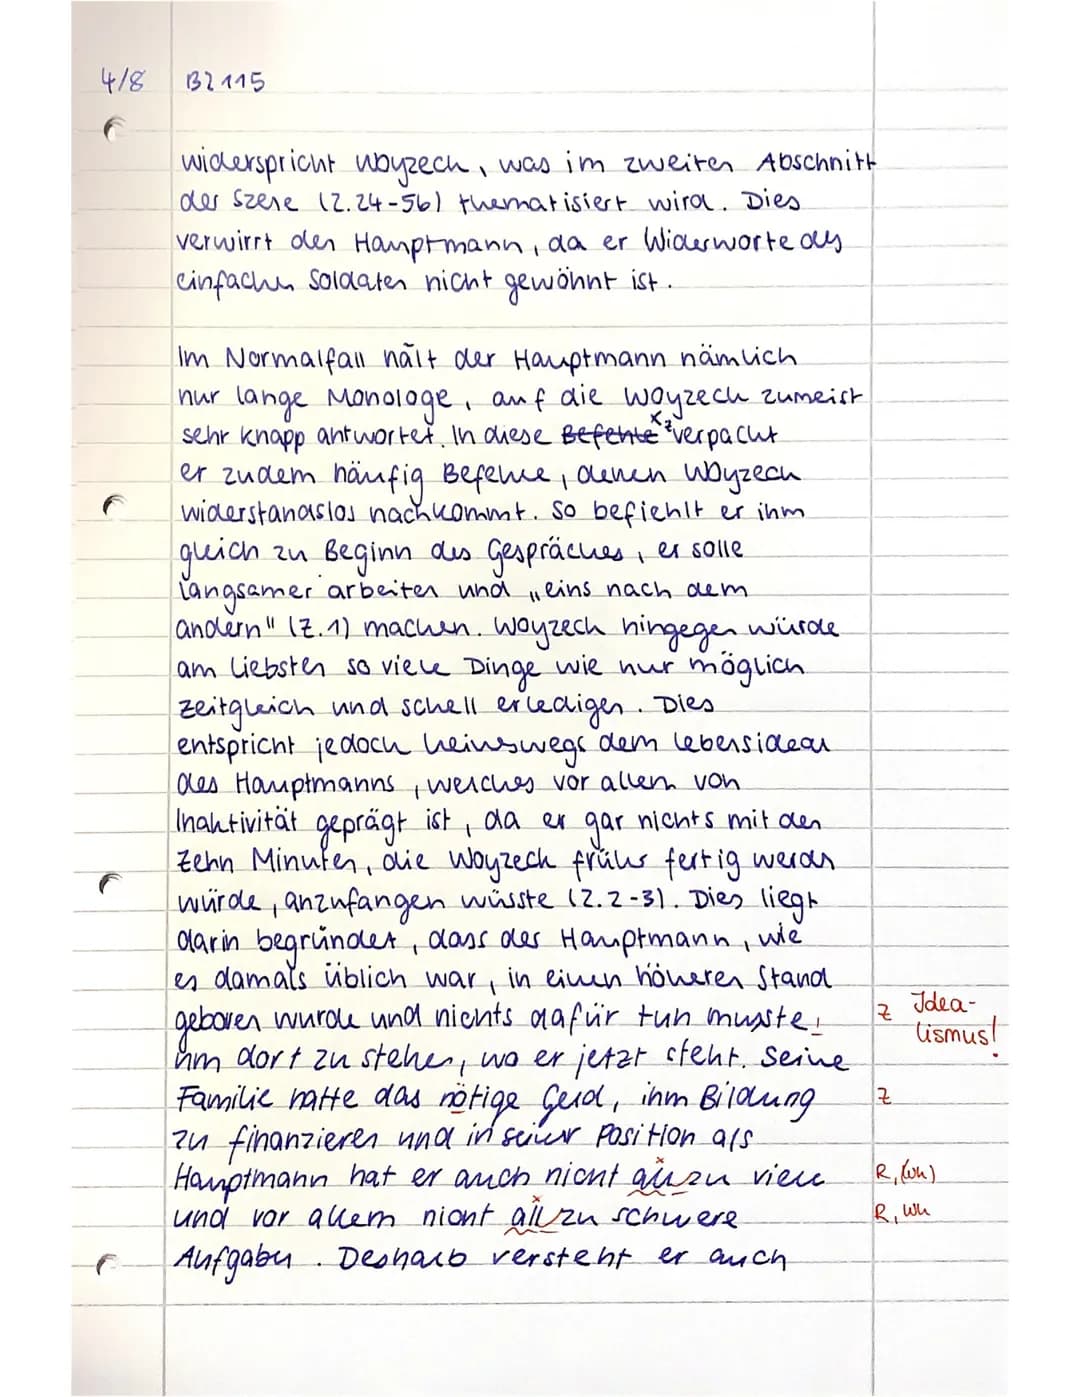 4/8 BZ 115
widerspricht Woyzeck, was im zweiten Abschnitt
der Szene (Z.24-56) thematisiert wird. Dies
verwirrt den Hauptmann, da er Widerworte des
einfachen Soldaten nicht gewöhnt ist.
Im Normalfall hält der Hauptmann nämlich
nur lange Monologe, auf die Woyzeck zumeist
sehr knapp antwortet. In diese Befehle verpackt
er zudem häufig Befehle, denen Woyzeck
widerstandslos nachkommt. So befiehlt er ihm
gleich zu Beginn des Gespräches, er solle
langsamer arbeiten und „eins nach dem
andern" (Z.1) machen. Woyzeck hingegen würde
am liebsten so viele Dinge wie nur möglich
zeitgleich und schell erledigen. Dies
entspricht jedoch keineswegs dem Lebensideal
des Hauptmanns, welches vor allem von
Inaktivität geprägt ist, da er gar nichts mit den
zehn Minuten, die Woyzeck früher fertig werden
würde, anzufangen wüsste (Z.2-3). Dies liegt
darin begründet, dass der Hauptmann, wie
es damals üblich war, in einen höheren Stand
geboren wurde und nichts dafür tun musste, z Idea-
um dort zu stehen, wo er jetzt steht. Seine lismus!
Familie hatte das nötige Geld, ihm Bildung z
zu finanzieren und in seiner Position als
Hauptmann hat er auch nicht allzu viele R, (Wh)
und vor allem nicht allzu schwere R, Wh
Aufgaben. Deshalb versteht er auch